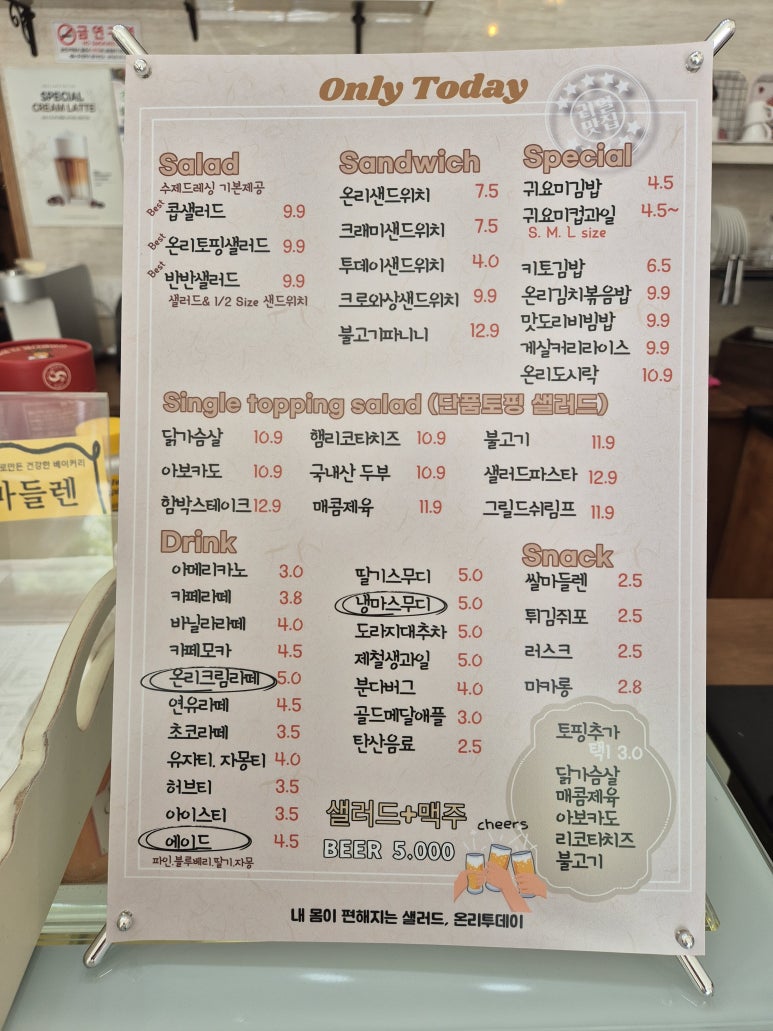 금연구역
SPECIAL
CREAM LATTE
마들렌
Only Today
리틀
맛집
Salad
수제드레싱 기본제공
Best 콥샐러드 9.9
Best 온리토핑샐러드 9.9
Best 반반샐러드 9.9
샐러드& 1/2 Size 샌드위치
Sandwich
온리샌드위치 7.5
크래미샌드위치 7.5
투데이샌드위치 4.0
크로와상샌드위치 9.9
불고기파니니 12.9
Special
귀요미김밥 4.5
귀요미컵과일 4.5~
S. M. L size
키토김밥 6.5
온리김치볶음밥 9.9
맛도리비빔밥 9.9
게살커리라이스 9.9
온리도시락 10.9
Single topping salad (단품토핑 샐러드)
닭가슴살 10.9 햄리코타치즈 10.9 불고기 11.9
아보카도 10.9 국내산 두부 10.9 샐러드파스타 12.9
함박스테이크 12.9 매콤제육 11.9 그릴드쉬림프 11.9
Drink
아메리카노 3.0
카페라떼 3.8
바닐라라떼 4.0
카페모카 4.5
온리크림라떼 5.0
연유라떼 4.5
초코라떼 3.5
유자티. 자몽티 4.0
허브티 3.5
아이스티 3.5
에이드 4.5
파인.블루베리.딸기.자몽
딸기스무디 5.0
냉마스무디 5.0
도라지대추차 5.0
제철생과일 5.0
분다버그 4.0
골드메달애플 3.0
탄산음료 2.5
샐러드+맥주
cheers
BEER 5.000
Snack
쌀마들렌 2.5
튀김쥐포 2.5
러스크 2.5
마카롱 2.8
토핑추가
택1 3.0
닭가슴살
매콤제육
아보카도
리코타치즈
불고기
내 몸이 편해지는 샐러드, 온리투데이